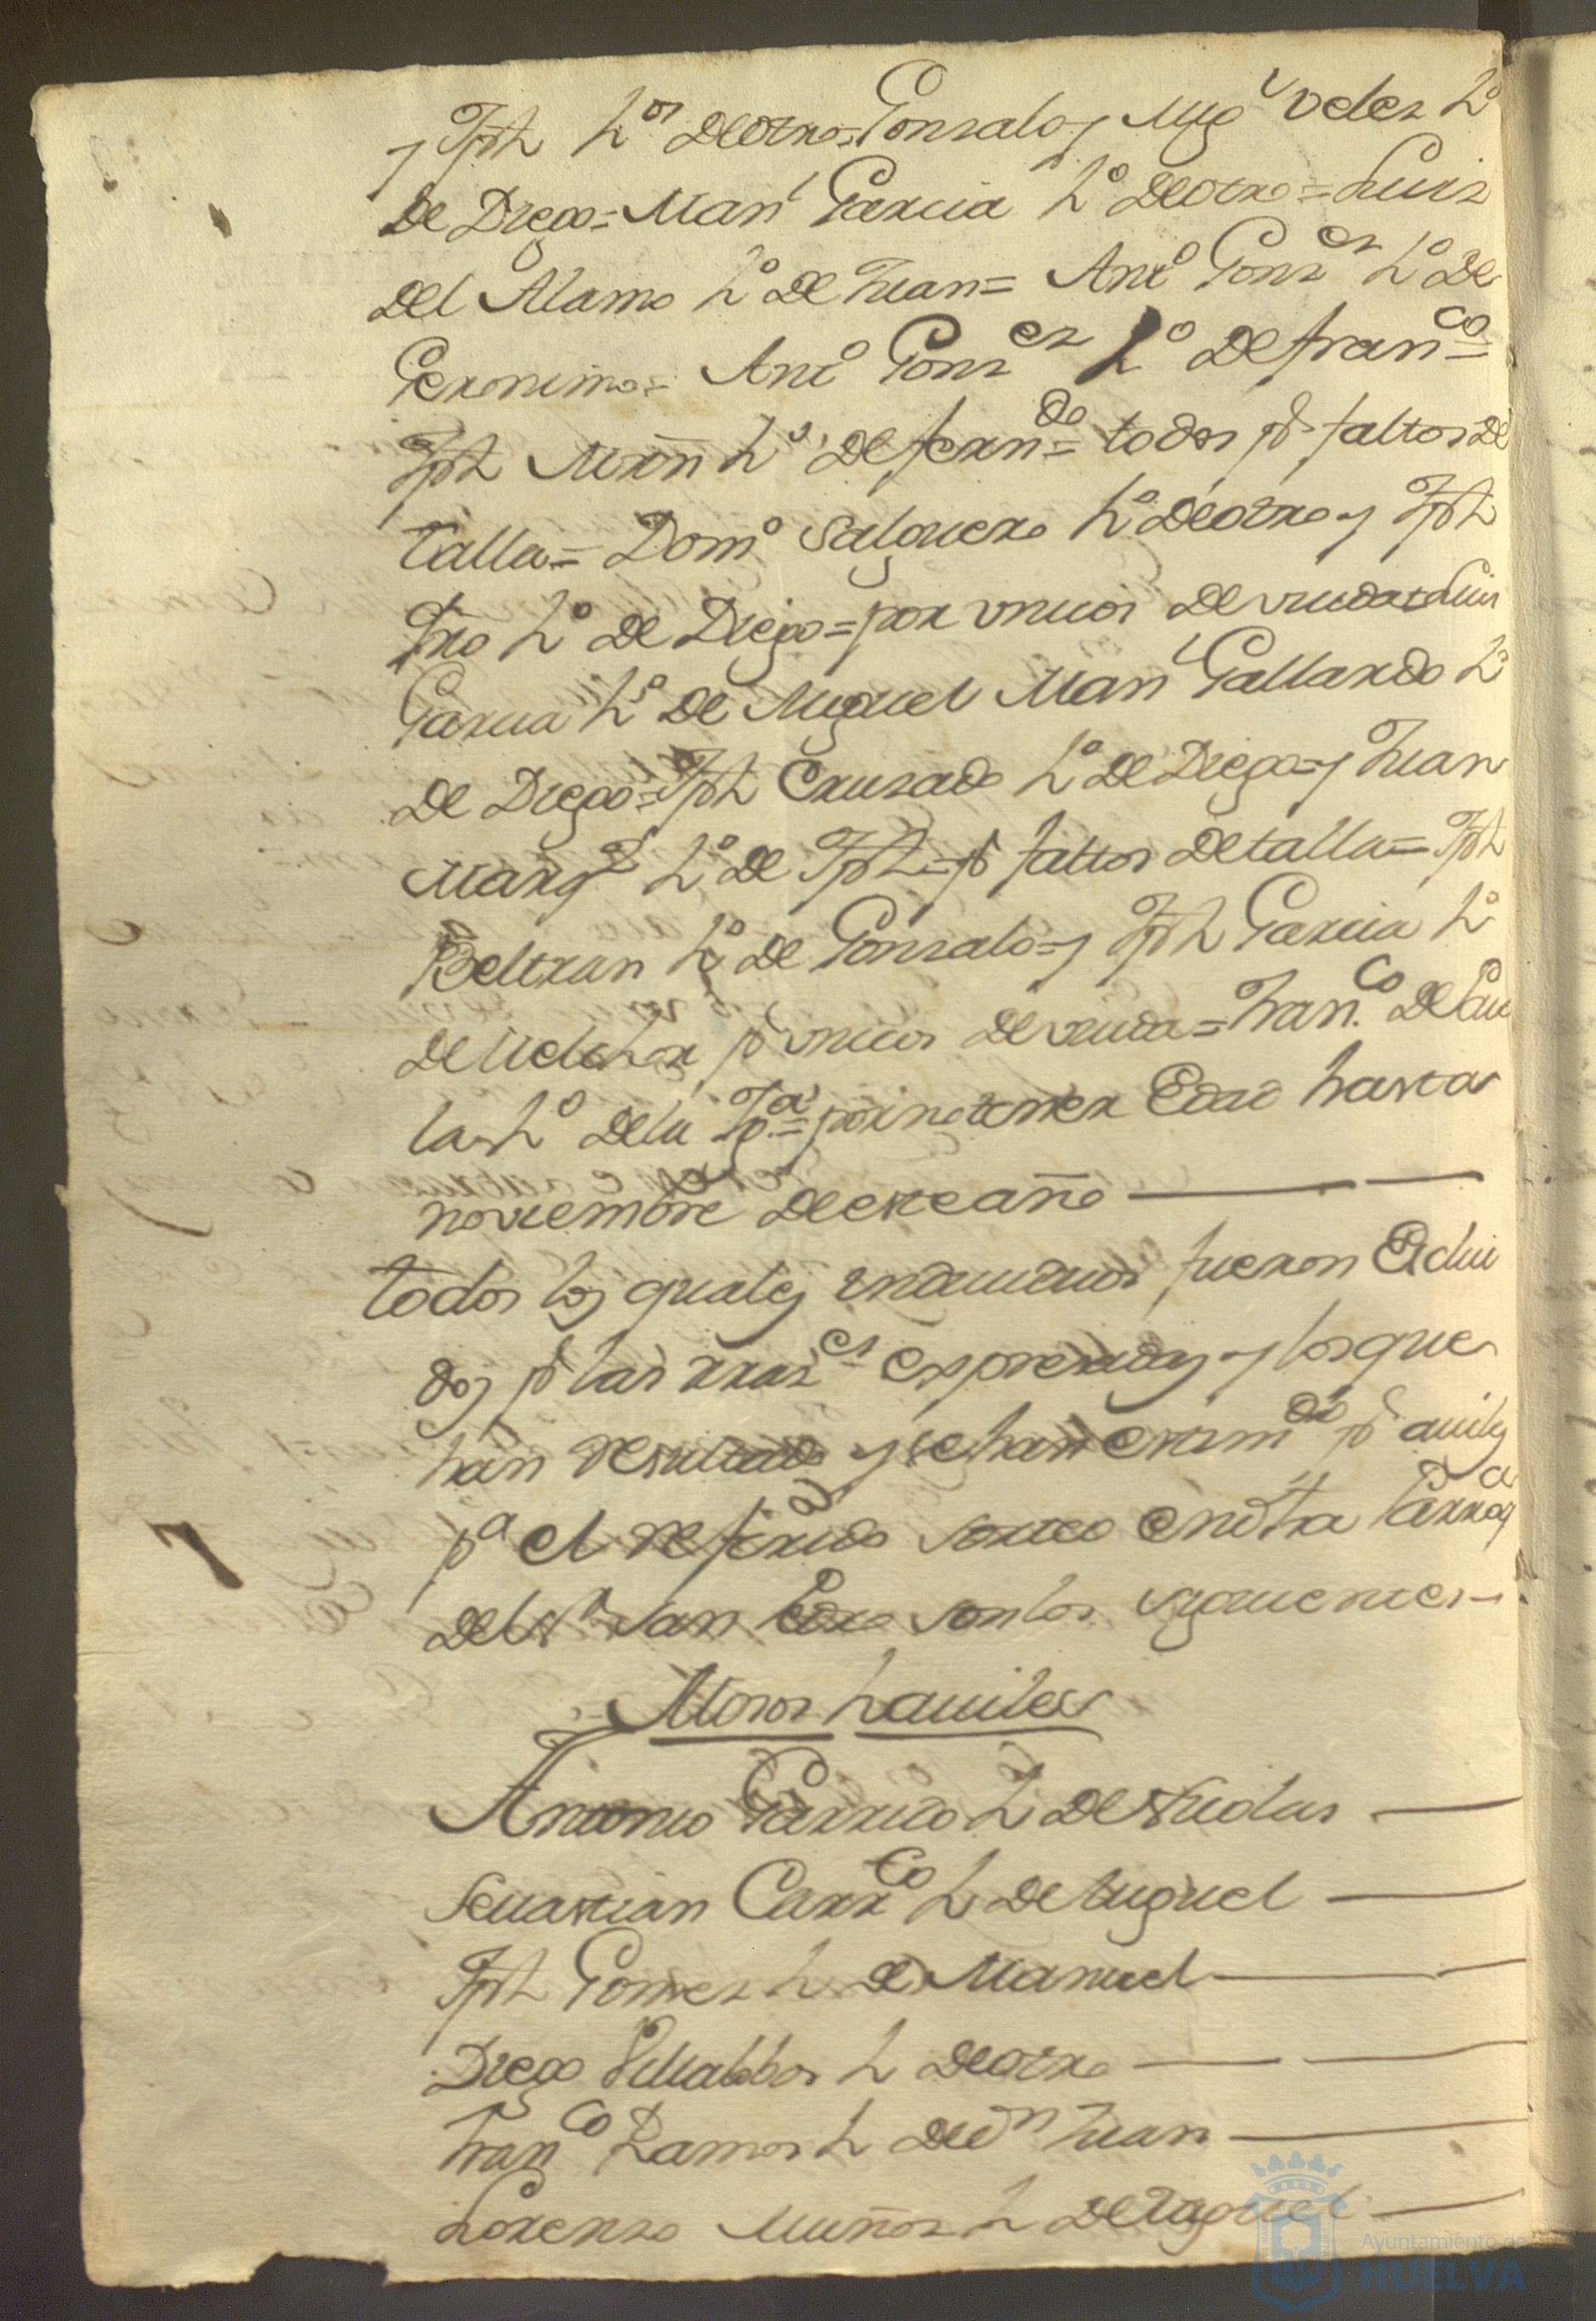 y Jph hos de otro = Gonsalo y Migl Veles ho
de Diego = Manl Garcia ho de otro = Luis
del Alamo ho de Juan = Anto Gonses ho de
Geronimo = Anto Gonses ho de Franco =
Jph Mrñ ho de Fernando = todos pr faltos de
talla = Domo Salguero ho de otro y Jph
ho de Diego = por unicos de viudas Luis
Garcia ho de Miguel Manl Gallardo ho
de Diego = Jph Crusado ho de Diego = y Juan
Marqz ho de Jph = pr faltos de talla = Jph
Beltran ho de Gonsalo = y Jph Garcia ho
de Melchor pr unicos de viuda = Franco de Pau
la ho de la Iga = por no tener Edad hasta
noviembre de este año
todos los quales yndividuos fueron Exclui
dos pr las rrases expresadas y los que
han resultado y se han examdo pr aviles
pa el referido sorteo en dha Parra
del Sr San Pedro son los siguientes
Mosos haviles
Antonio Garrido h de Nicolas
Sevastian Carrco h de Miguel
Jph Gomes h de Manuel
Diego Villalobos h de otro
Franco Ramos h de Dn Juan
Lorenso Muños h de
Ayuntamiento de
HUELVA